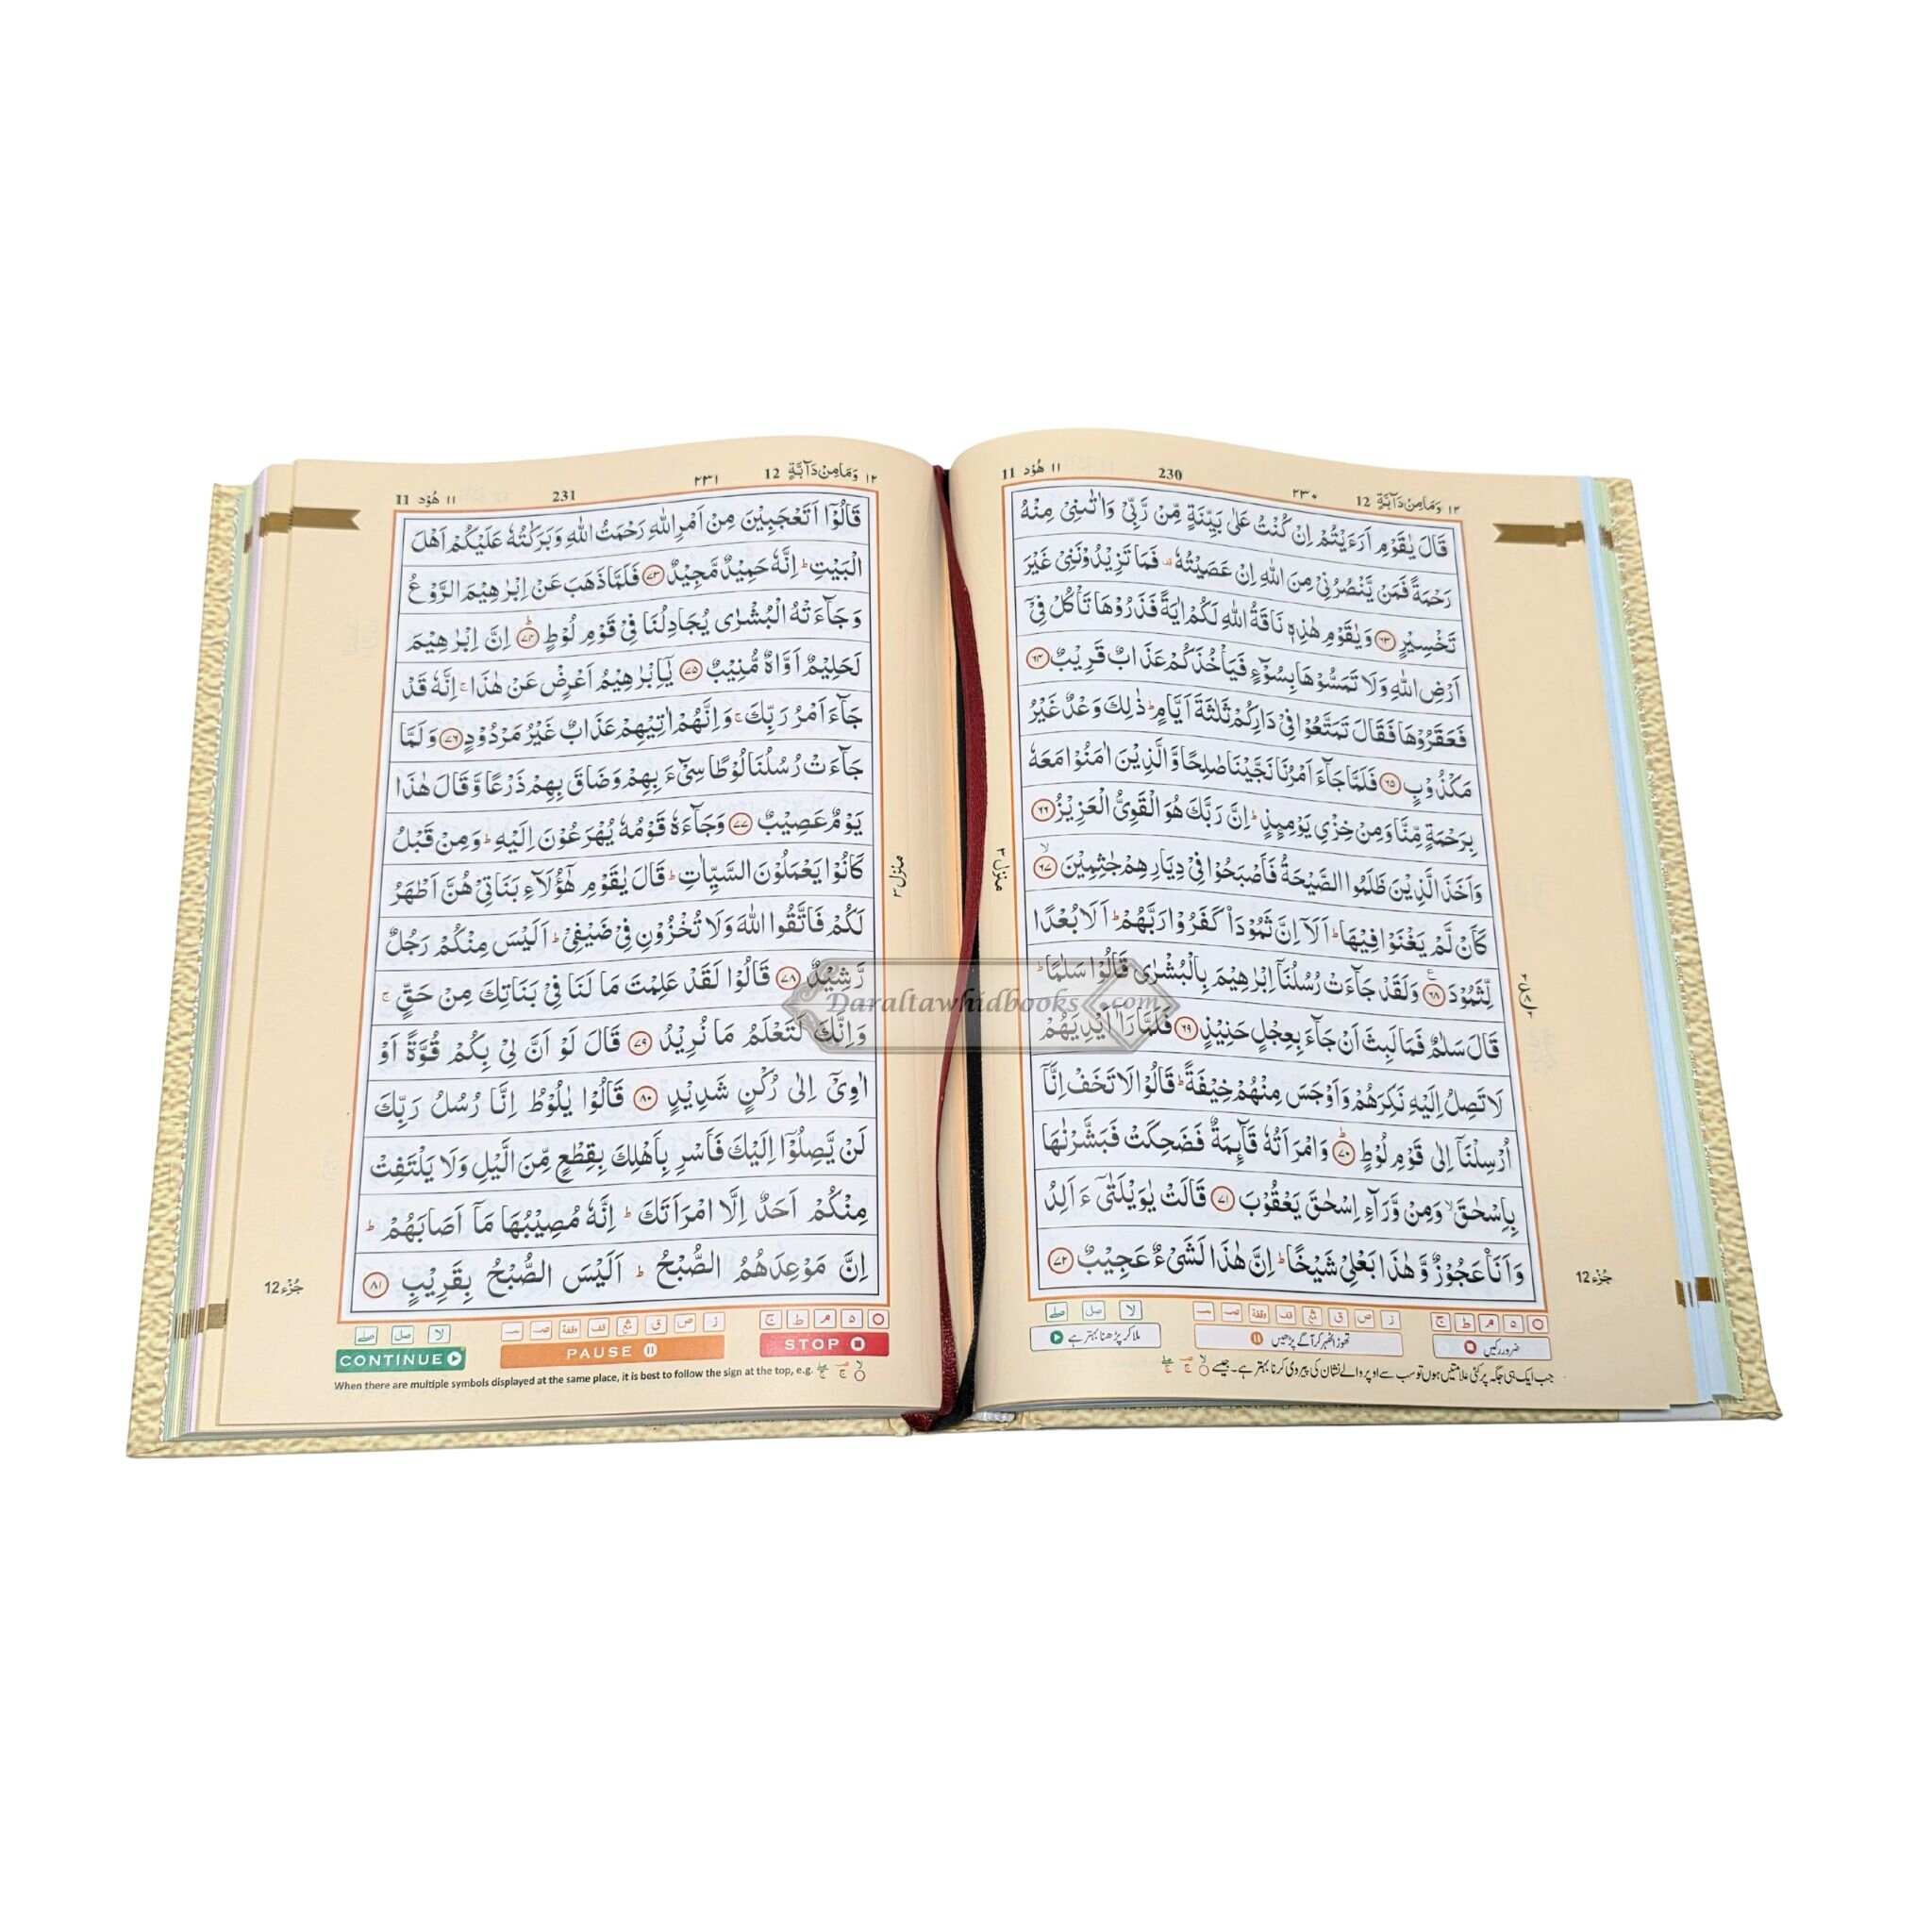 ١٢ وَمَا مِنْ دَآبَّةٍ 12
٢٣٠
230
١١ هُوْد 11
قَالَ يٰقَوْمِ اَرَءَيْتُمْ اِنْ كُنْتُ عَلٰى بَيِّنَةٍ مِّنْ رَّبِّىْ وَاٰتٰىنِىْ مِنْهُ
رَحْمَةً فَمَنْ يَّنْصُرُنِىْ مِنَ اللّٰهِ اِنْ عَصَيْتُهٗ ۚ فَمَا تَزِيْدُوْنَنِىْ غَيْرَ
تَخْسِيْرٍ ﴿٦٣﴾ وَيٰقَوْمِ هٰذِهٖ نَاقَةُ اللّٰهِ لَكُمْ اٰيَةً فَذَرُوْهَا تَاْكُلْ فِىْٓ
اَرْضِ اللّٰهِ وَلَا تَمَسُّوْهَا بِسُوْٓءٍ فَيَاْخُذَكُمْ عَذَابٌ قَرِيْبٌ ﴿٦٤﴾
فَعَقَرُوْهَا فَقَالَ تَمَتَّعُوْا فِىْ دَارِكُمْ ثَلٰثَةَ اَيَّامٍ ؕ ذٰلِكَ وَعْدٌ غَيْرُ
مَكْذُوْبٍ ﴿٦٥﴾ فَلَمَّا جَآءَ اَمْرُنَا نَجَّيْنَا صٰلِحًا وَّالَّذِيْنَ اٰمَنُوْا مَعَهٗ
بِرَحْمَةٍ مِّنَّا وَمِنْ خِزْىِ يَوْمِئِذٍ ؕ اِنَّ رَبَّكَ هُوَ الْقَوِىُّ الْعَزِيْزُ ﴿٦٦﴾
وَاَخَذَ الَّذِيْنَ ظَلَمُوا الصَّيْحَةُ فَاَصْبَحُوْا فِىْ دِيَارِهِمْ جٰثِمِيْنَ ﴿٦٧﴾ ۙ
كَاَنْ لَّمْ يَغْنَوْا فِيْهَا ؕ اَلَآ اِنَّ ثَمُوْدَا۟ كَفَرُوْا رَبَّهُمْ ؕ اَلَا بُعْدًا
لِّثَمُوْدَ ﴿٦٨﴾ وَلَقَدْ جَآءَتْ رُسُلُنَآ اِبْرٰهِيْمَ بِالْبُشْرٰى قَالُوْا سَلٰمًا ؕ
قَالَ سَلٰمٌ فَمَا لَبِثَ اَنْ جَآءَ بِعِجْلٍ حَنِيْذٍ ﴿٦٩﴾ فَلَمَّا رَآٰ اَيْدِيَهُمْ
لَا تَصِلُ اِلَيْهِ نَكِرَهُمْ وَاَوْجَسَ مِنْهُمْ خِيْفَةً ؕ قَالُوْا لَا تَخَفْ اِنَّآ
اُرْسِلْنَآ اِلٰى قَوْمِ لُوْطٍ ﴿٧٠﴾ ؕ وَامْرَاَتُهٗ قَآئِمَةٌ فَضَحِكَتْ فَبَشَّرْنٰهَا
بِاِسْحٰقَ ۙ وَمِنْ وَّرَآءِ اِسْحٰقَ يَعْقُوْبَ ﴿٧١﴾ قَالَتْ يٰوَيْلَتٰٓى ءَاَلِدُ
وَاَنَا۟ عَجُوْزٌ وَّهٰذَا بَعْلِىْ شَيْخًا ؕ اِنَّ هٰذَا لَشَىْءٌ عَجِيْبٌ ﴿٧٢﴾
منزل ٣
جُزْء 12
ضرور رکیں
تھوڑا ٹھہر کر آگے پڑھیں
ملا کر پڑھنا بہتر ہے
جب ایک ہی جگہ پر کئی علامتیں ہوں تو سب سے اوپر والے نشان کی پیروی کرنا بہتر ہے۔ جیسے
١٢ وَمَا مِنْ دَآبَّةٍ 12
٢٣١
231
١١ هُوْد 11
قَالُوْٓا اَتَعْجَبِيْنَ مِنْ اَمْرِ اللّٰهِ رَحْمَتُ اللّٰهِ وَبَرَكٰتُهٗ عَلَيْكُمْ اَهْلَ
الْبَيْتِ ؕ اِنَّهٗ حَمِيْدٌ مَّجِيْدٌ ﴿٧٣﴾ فَلَمَّا ذَهَبَ عَنْ اِبْرٰهِيْمَ الرَّوْعُ
وَجَآءَتْهُ الْبُشْرٰى يُجَادِلُنَا فِىْ قَوْمِ لُوْطٍ ﴿٧٤﴾ ؕ اِنَّ اِبْرٰهِيْمَ
لَحَلِيْمٌ اَوَّاهٌ مُّنِيْبٌ ﴿٧٥﴾ يٰٓاِبْرٰهِيْمُ اَعْرِضْ عَنْ هٰذَا ۚ اِنَّهٗ قَدْ
جَآءَ اَمْرُ رَبِّكَ ۚ وَاِنَّهُمْ اٰتِيْهِمْ عَذَابٌ غَيْرُ مَرْدُوْدٍ ﴿٧٦﴾ وَلَمَّا
جَآءَتْ رُسُلُنَا لُوْطًا سِىْٓءَ بِهِمْ وَضَاقَ بِهِمْ ذَرْعًا وَّقَالَ هٰذَا
يَوْمٌ عَصِيْبٌ ﴿٧٧﴾ وَجَآءَهٗ قَوْمُهٗ يُهْرَعُوْنَ اِلَيْهِ ؕ وَمِنْ قَبْلُ
كَانُوْا يَعْمَلُوْنَ السَّيِّاٰتِ ؕ قَالَ يٰقَوْمِ هٰٓؤُلَآءِ بَنَاتِىْ هُنَّ اَطْهَرُ
لَكُمْ فَاتَّقُوا اللّٰهَ وَلَا تُخْزُوْنِ فِىْ ضَيْفِىْ ؕ اَلَيْسَ مِنْكُمْ رَجُلٌ
رَّشِيْدٌ ﴿٧٨﴾ قَالُوْا لَقَدْ عَلِمْتَ مَا لَنَا فِىْ بَنَاتِكَ مِنْ حَقٍّ ۚ
وَاِنَّكَ لَتَعْلَمُ مَا نُرِيْدُ ﴿٧٩﴾ قَالَ لَوْ اَنَّ لِىْ بِكُمْ قُوَّةً اَوْ
اٰوِىْٓ اِلٰى رُكْنٍ شَدِيْدٍ ﴿٨٠﴾ قَالُوْا يٰلُوْطُ اِنَّا رُسُلُ رَبِّكَ
لَنْ يَّصِلُوْٓا اِلَيْكَ فَاَسْرِ بِاَهْلِكَ بِقِطْعٍ مِّنَ الَّيْلِ وَلَا يَلْتَفِتْ
مِنْكُمْ اَحَدٌ اِلَّا امْرَاَتَكَ ؕ اِنَّهٗ مُصِيْبُهَا مَآ اَصَابَهُمْ ؕ
اِنَّ مَوْعِدَهُمُ الصُّبْحُ ؕ اَلَيْسَ الصُّبْحُ بِقَرِيْبٍ ﴿٨١﴾
منزل ٣
جُزْء 12
CONTINUE
PAUSE
STOP
When there are multiple symbols displayed at the same place, it is best to follow the sign at the top, e.g.
Daraltawhidbooks.com